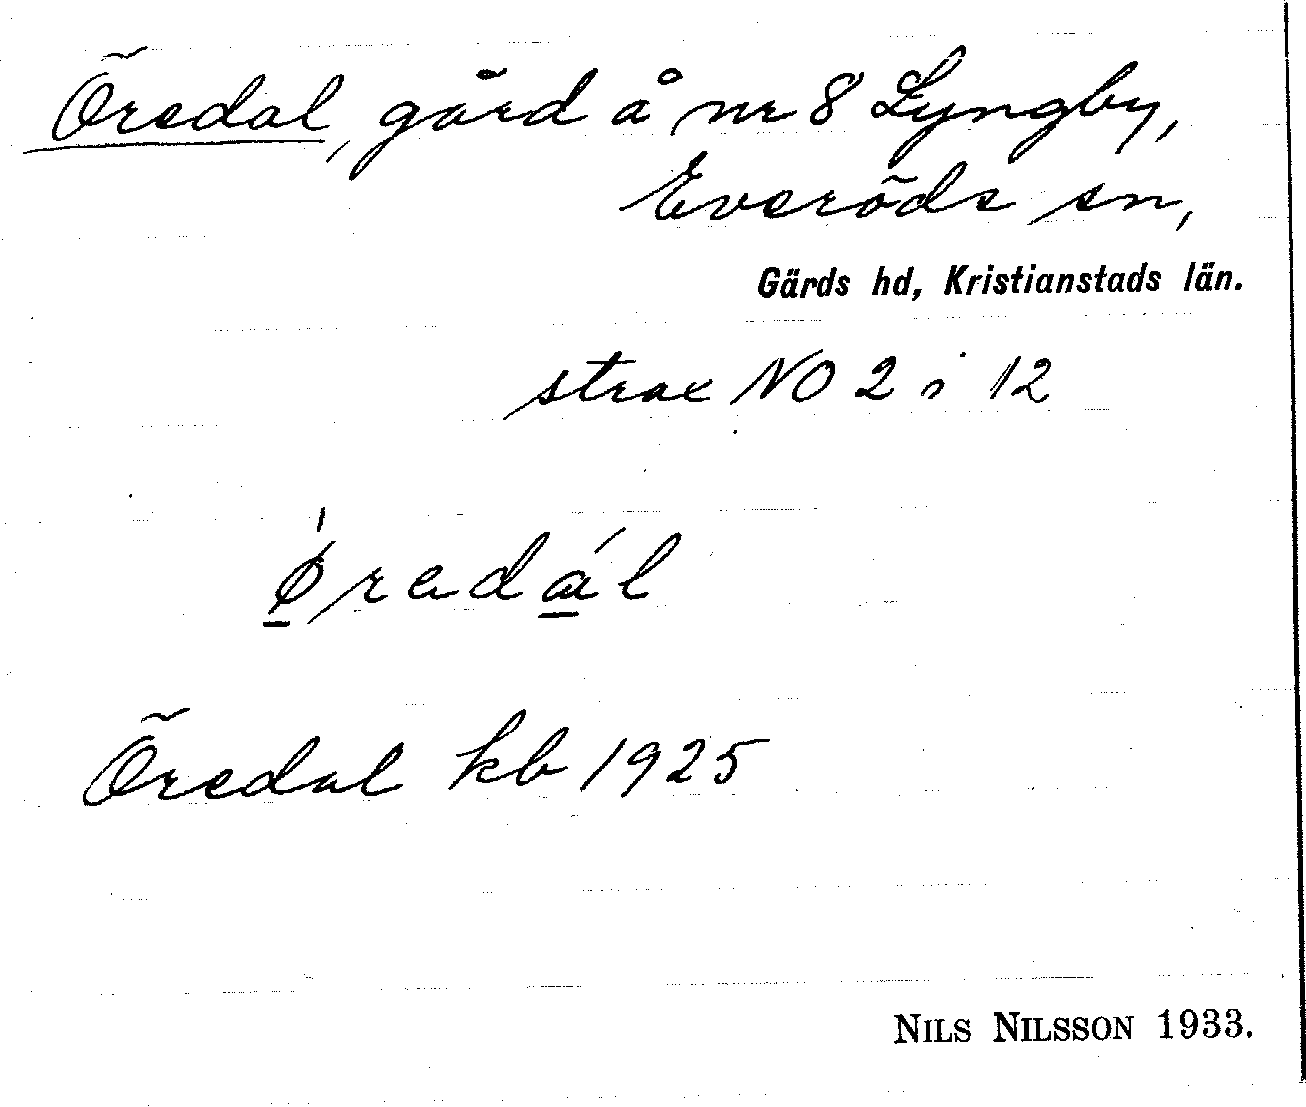 Öredal, gård å nr 8 Lyngby,
Everöds sn,
Gärds hd, Kristianstads län.
strax NO 2 i 12
ø̱redá̱l
Öredal kb 1925
NILS NILSSON 1933.